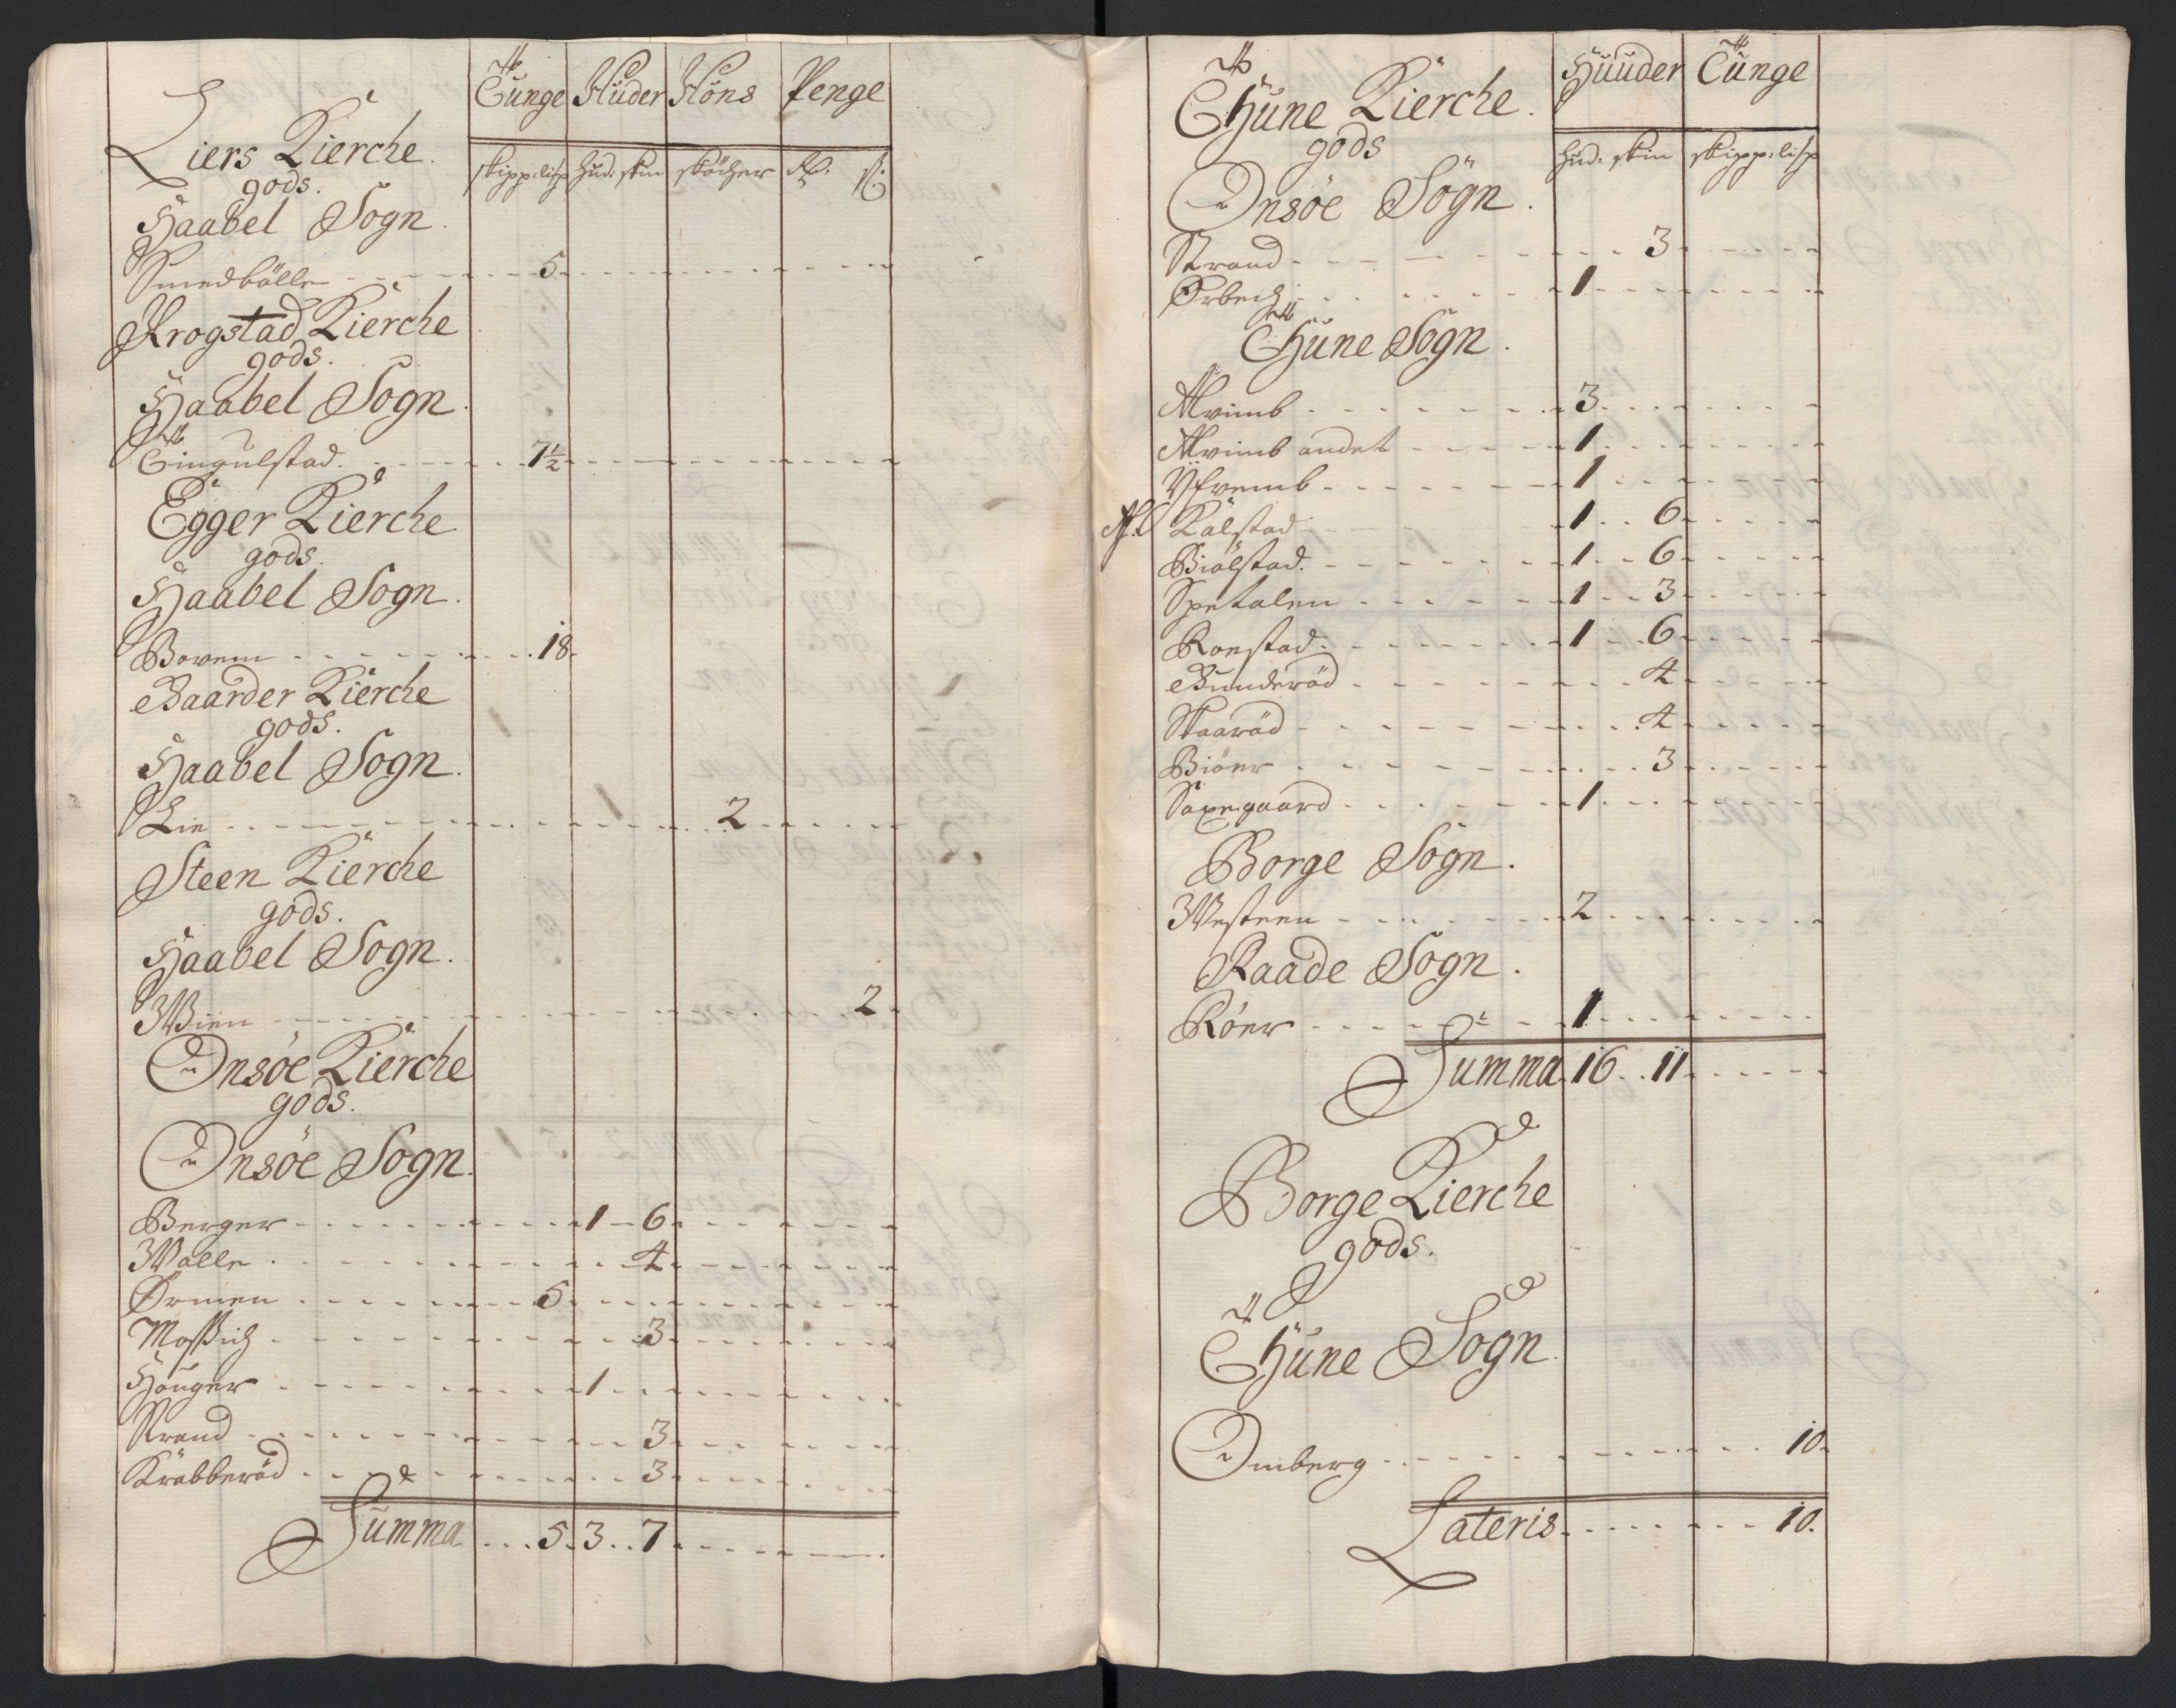 Tunge Huder Höns Penge
Liers Kierche
gods.
skipp: lisp hud: skin
Haabel Sogn.
Smedbölle 5
Krogstad Kierche
gods.
Haabel Sogn.
Tingulstad 7½
Egger Kierche
gods.
Haabel Sogn.
Bovem 18
Baarder Kierche
gods.
Haabel Sogn.
Lie 2
Steen Kierche
gods.
Haabel Sogn.
Wien 2
Onsöe Kierche
gods.
Onsöe Sogn.
Berger 1 6
Walle 4
Ørmen 5
Mossich 3
Hauger 1
Strand 3
Krabberöd 3
Summa 5 3 7
Huuder Tunge
Thune Kierche.
gods
hud: skin skipp: lisp
Onsöe Sogn.
Strand 3
Ørbech 1
Thune Sogn.
Alvimb 3
Alvimb andet 1
Yfremb 1
Kalstad 1 6
Biölstad. 1 6
Spetalen 1 3
Ronstad 1 6
Bunderöd 4
Skaaröd 4
Biöer 3
Saxegaard 1
Borge Sogn.
Westeen 2
Raade Sogn.
Röer 1
Summa 16 11
Borge Kierche
gods.
Thune Sogn.
Omberg 10
Lateris 10.